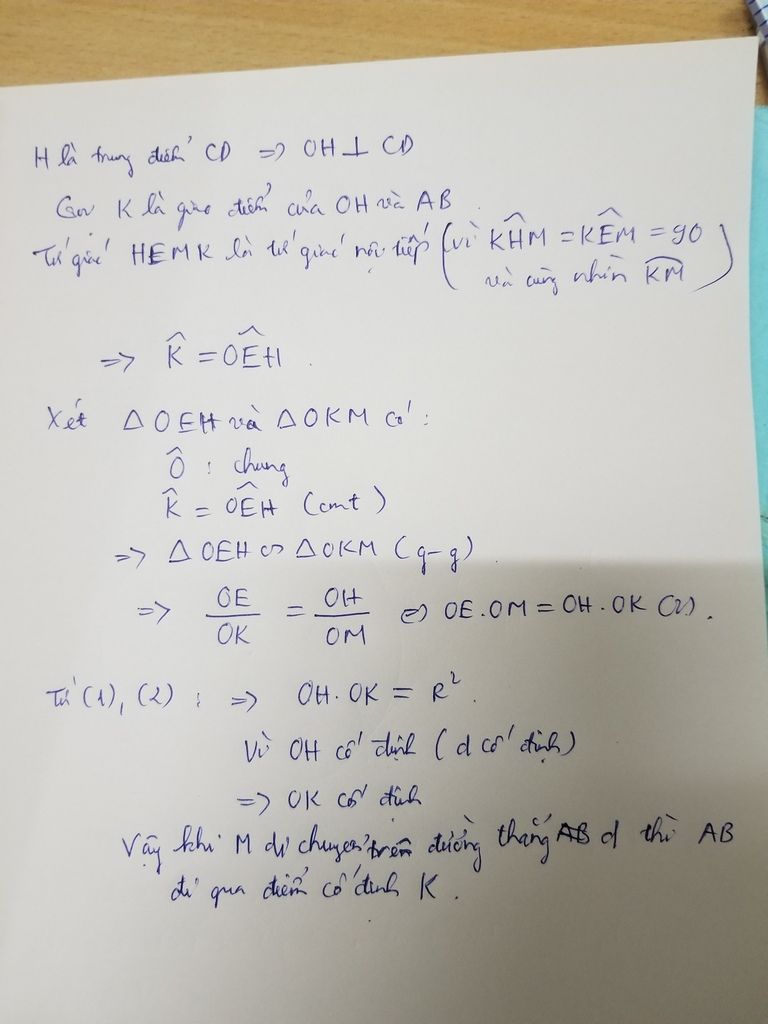 H là trung điểm CD => OH ⊥ CD
Gọi K là giao điểm của OH và AB.
Tứ giác HEMK là tứ giác nội tiếp (vì K̂HM = K̂EM = 90
và cùng nhìn KM)
=> K̂ = OÊH.
Xét Δ OEH và Δ OKM có:
Ô : chung
K̂ = OÊH (cmt)
=> Δ OEH ∽ Δ OKM (g-g)
=> OE/OK = OH/OM <=> OE.OM = OH.OK (2).
Từ (1), (2) : => OH.OK = R².
Vì OH cố định (d cố định)
=> OK cố định
Vậy khi M di chuyển trên đường thẳng d thì AB
đi qua điểm cố định K.